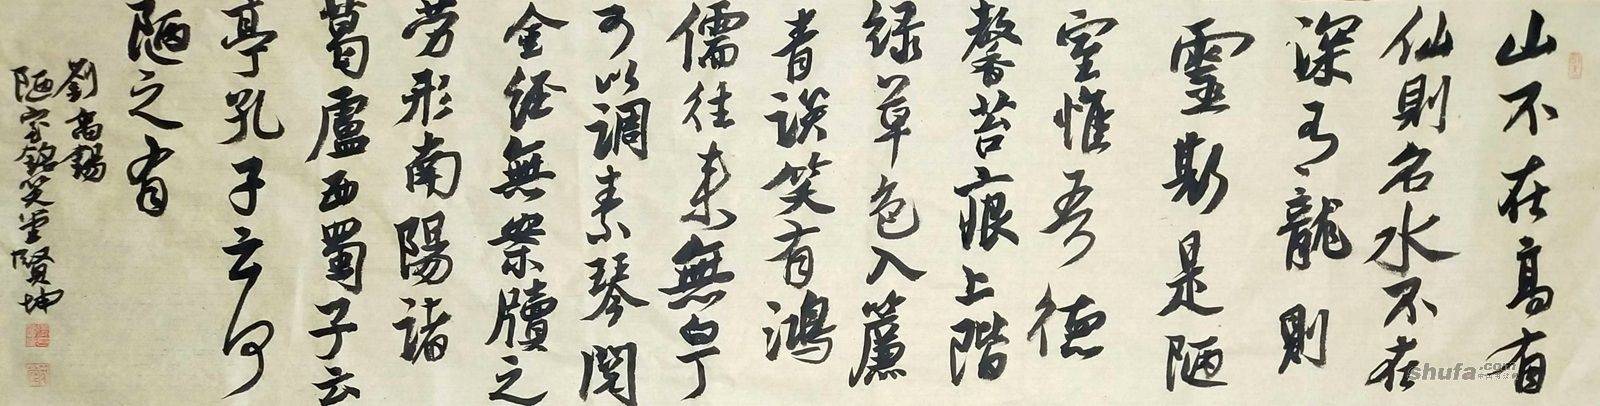 山不在高有
仙則名水不在
深有龍則
靈斯是陋
室惟吾德
馨苔痕上階
绿草色入簾
青談笑有鴻
儒往来無白丁
可以調素琴閱
金経無案牘之
劳形南陽諸
葛盧西蜀子云
亭孔子云何
陋之有
劉禹錫
陋室銘笑堂賢坤
shufa.com